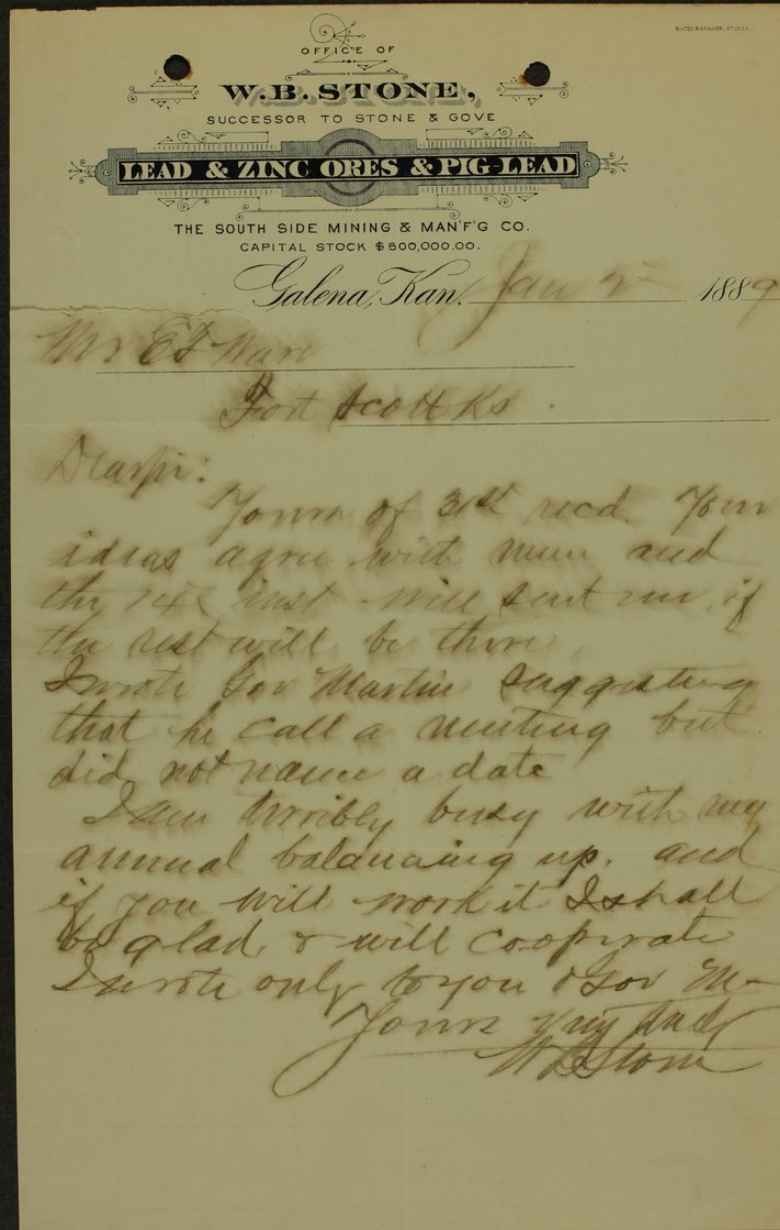 OFFICE OF
W. B. STONE,
SUCCESSOR TO STONE & GOVE
LEAD & ZINC ORES & PIG-LEAD
THE SOUTH SIDE MINING & MAN'F'G CO.
CAPITAL STOCK $500,000.00.
Galena, Kan. Jan 2 1889
Mr E F Ware
Fort Scott Ks.
Dear sir:
Yours of 31st recd. Your
ideas agree with mine and
the 14th inst will suit me, if
the rest will be there
I wrote Gov Martin suggesting
that he call a meeting but
did not name a date
I am terribly busy with my
annual balancing up. and
if you will work it I shall
be glad & will cooperate
I wrote only to you & Gov M-
Yours very truly
W B Stone